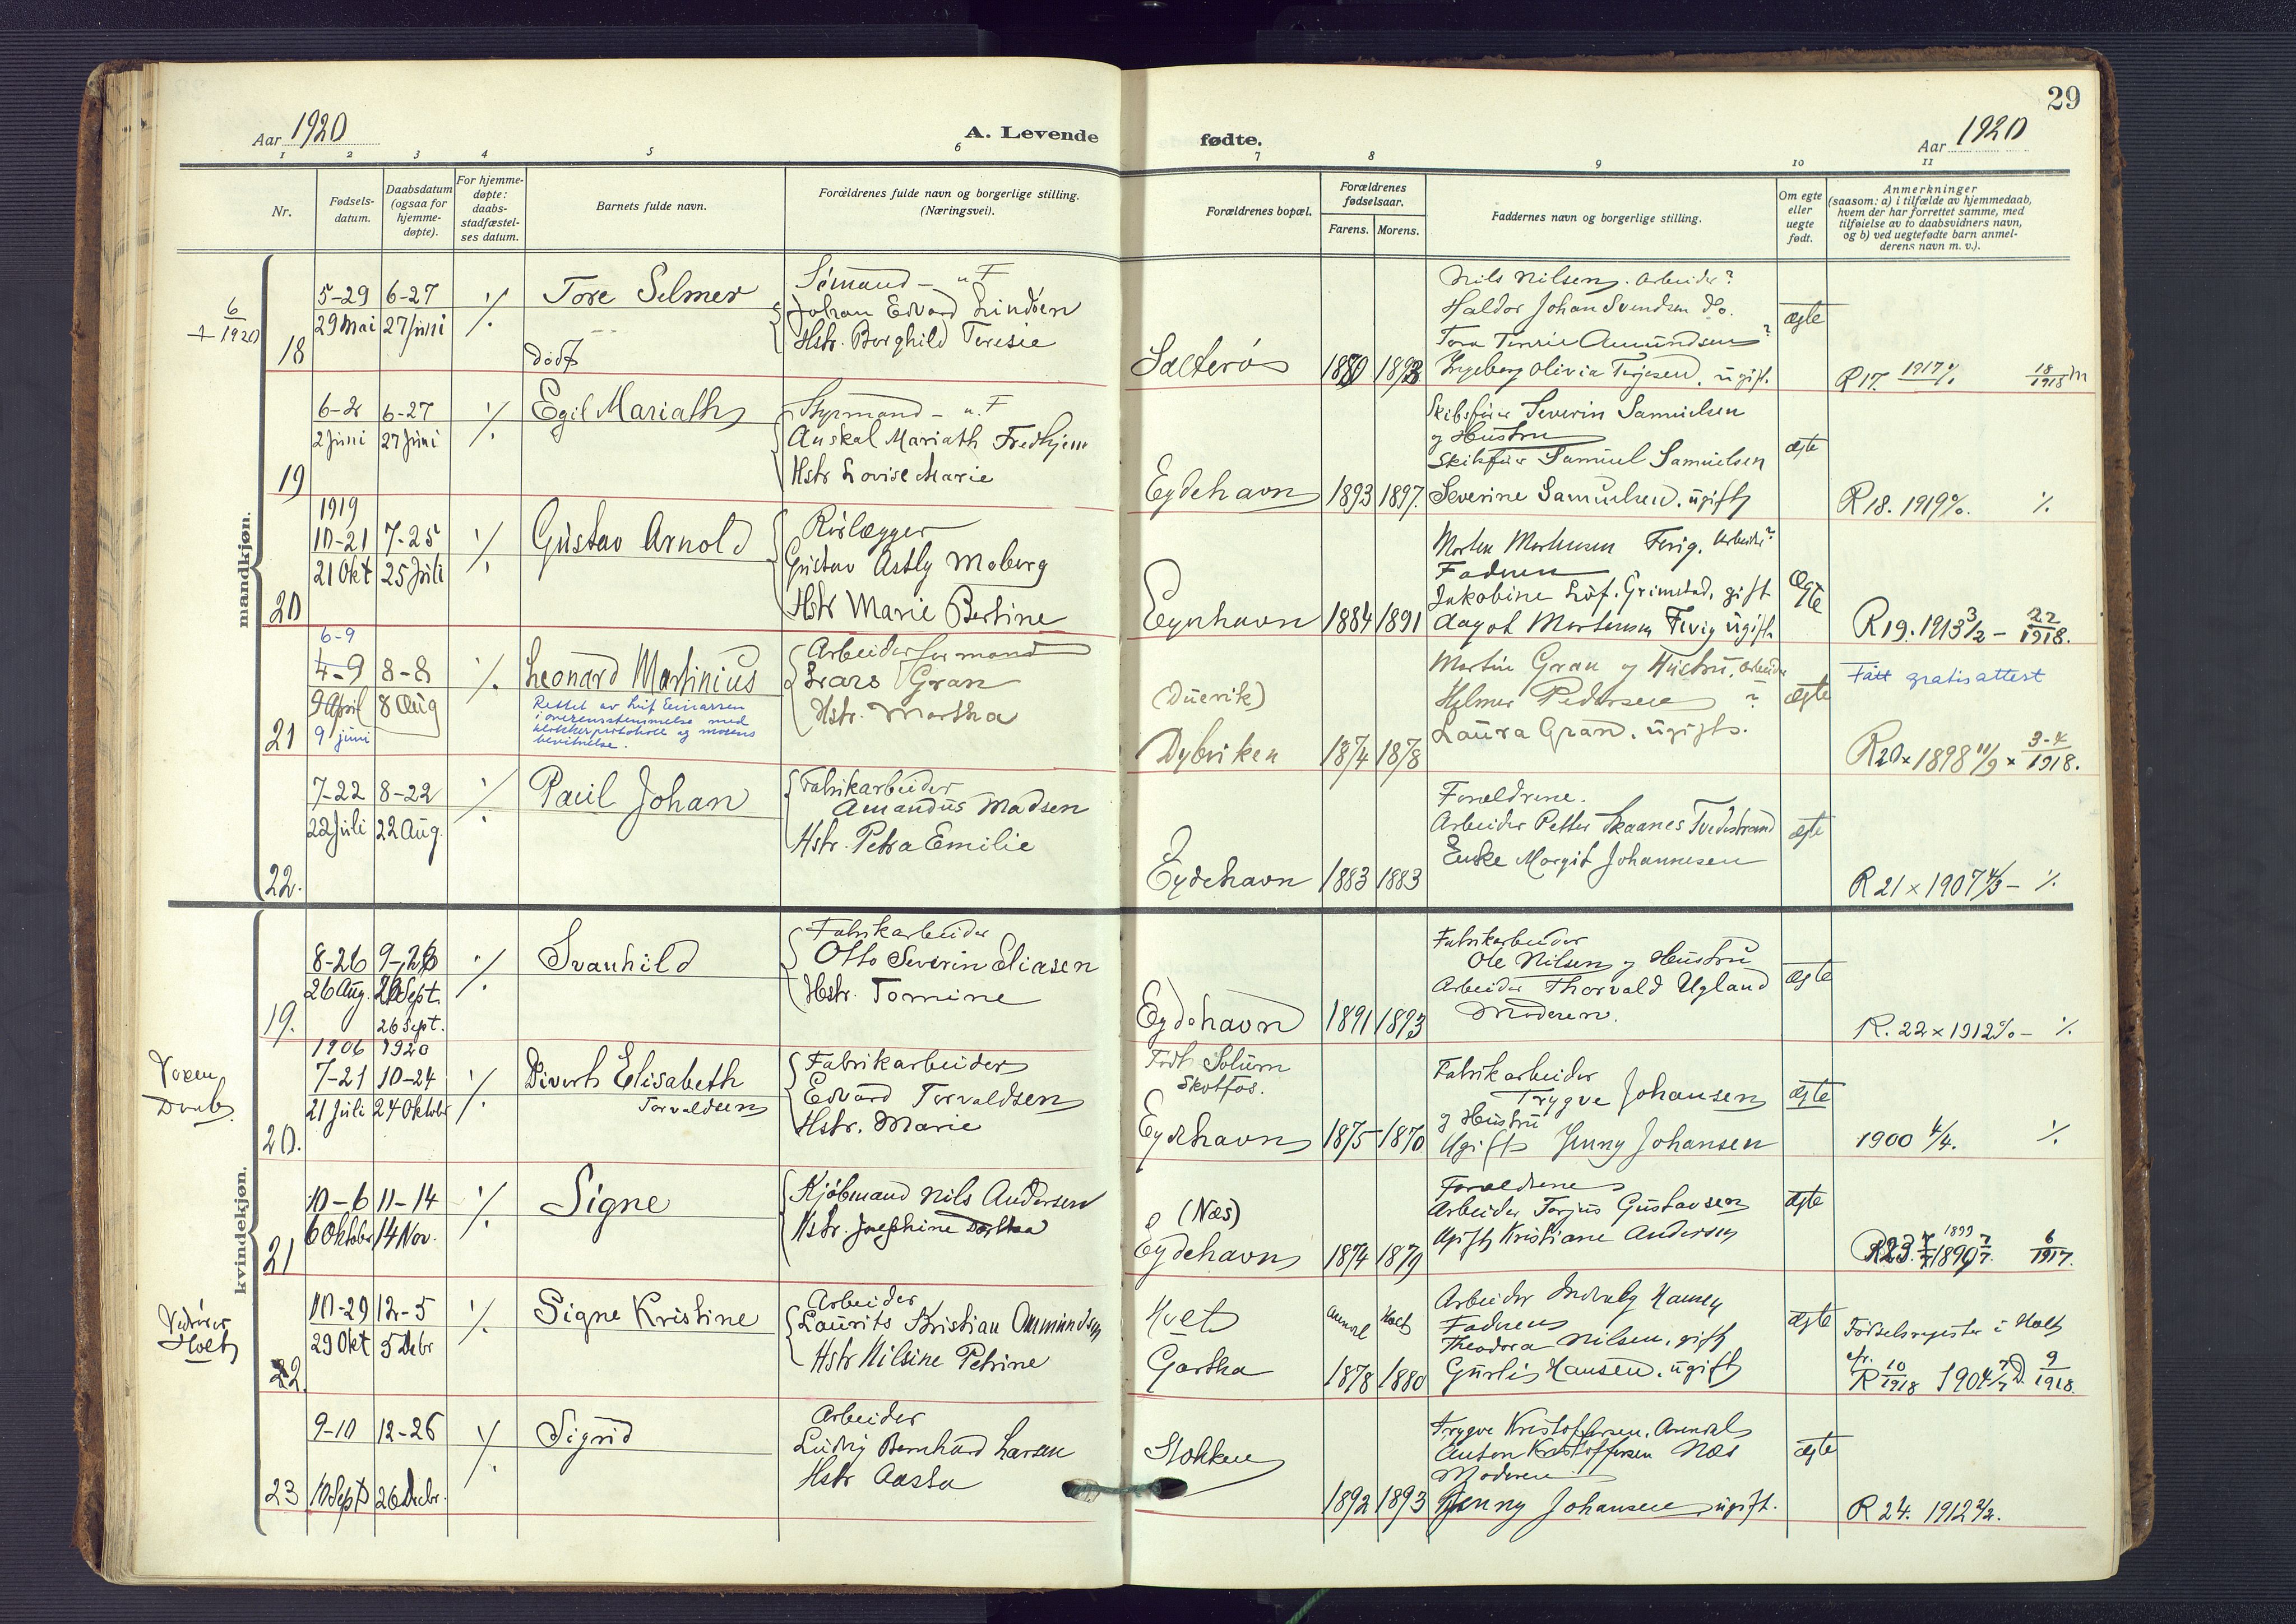 29
Aar 1920
A. Levende
fødte.
Aar 1920
1 2 3 4 5 6 7 8 9 10 11
Nr.
Fødsels-
datum.
Daabsdatum
(ogsaa for
hjemme-
døpte).
For hjemme-
døpte:
daabs-
stadfæstel-
ses datum.
Barnets fulde navn.
Forældrenes fulde navn og borgerlige stilling.
(Næringsvei).
Forældrenes bopæl.
Forældrenes
fødselsaar.
Farens. Morens.
Faddernes navn og borgerlige stilling.
Om egte
eller
uegte
født.
Anmerkninger
(saasom: a) i tilfælde av hjemmedaab,
hvem der har forrettet samme, med
tilføielse av to daabsvidners navn,
og b) ved uegtefødte barn anmel-
derens navn m. v.).
mandkjøn.
6
+ 1920
18
5-29 6-27
29 Mai 27 Juni
./.
Tore Selmer
død
Sømand - u. F
Johan Edvard Lindøen
Hstr. Borghild Teresie
Salterø
1880 1893
Nils Nilsen. Arbeider?
Haldor Johan Svendsen do.
Tora Amundsen ?
Ingeborg Olivia Terjesen. ugift.
ægte
R17. 1917 18/1918 m
19
6-2 6-27
2 Juni 27 Juni
./.
Egil Mariath
Styrmand - u. F
Anskal Mariath Fredhjem
Hstr Lovise Marie
Eydehavn
1893 1897.
Skibsfører Severin Samuelsen
og Hustru
Skibsfører Samuel Samuelsen
Severine Samuelsen. ugift
ægte
R18. 1919 %.
20
1919
10-21 7-25
21 Okt 25 Juli
./.
Gustav Arnold
Rørlægger
Gustav Astly Moberg
Hstr Marie Bertine
Eydehavn
1884 1891
Morten Mortensen Fevig. Arbeider?
Faderen
Jakobine Løf. Grimstad, gift
Dagot Mortensen Fevig ugift
Ægte
R19. 1913 3/2 - 22/1918.
21
6-9
4-9 8-8
9 April 8 Aug
9 juni
./.
Leonard Martinius
Rettet av Leif Einarsen
i overensstemmelse med
klokkerprotokoll og morens
bevitnelse.
Arbeiderformand
Lars Gran
Hstr. Martha
(Duevik)
Dybviken
1874 1878
Martin Gran og Hustru, arbeider
Helmer Pedersen ?
Laura Gran. ugift.
ægte
Fått gratisattest
R20 x 1898 11/9 x 3-4/1918.
22.
7-22 8-22
22 Juli 22 Aug.
./.
Paul Johan
Fabrikarbeider
Amandus Madsen
Hstr. Petra Emilie
Eydehavn
1883 1883
Forældrene.
Arbeider Petter Skaanes Tvedestrand
Enke Margit Johannesen
ægte
R 21 x 1907 4/3 - ./.
kvindekjøn.
19.
8-26 9-26
26 Aug. 26 Sept.
26 Sept.
./.
Svanhild
Fabrikarbeider
Otto Severin Eliasen
Hstr. Tomine
Eydehavn
1891 1893
Fabrikarbeider
Ole Nilsen og Hustru
Arbeider Thorvald Ugland
Moderen.
ægte
R. 22 x 1912 % - ./.
Voxen
Daab
20.
1906 1920
7-21 10-24
21 Juli 24 Oktober
./.
Diverth Elisabeth
Torvaldsen
Fabrikarbeider
Edvard Torvaldsen
Hstr. Marie
Født Solum
Skotfos.
Eydehavn
1875 1870
Fabrikarbeider
Trygve Johansen
og Hustru
Ugift Jenny Johansen
ægte
1900 4/4. ./.
21
10-6 11-14
6 Oktober 14 Nov.
./.
Signe
Kjøbmand Nils Andersen
Hstr. Josephine Dorthea
(Næs)
Eydehavn
1874 1879
Forældrene
Arbeider Terjus Gustavsen
Ugift Kristiane Andersen
ægte
1899
R23. 6/1917.
Holt
22.
10-29 12-5
29 Okt 5 Debr
./.
Signe Kristine
Arbeider
Laurits Kristian Ommundsen
Hstr Nilsine Petrine
Holt
Gartha
Arendal Holt
1878 1880
Arbeider Hansen
Faderen
Theodora Nilsen, gift
Gurli Hansen. ugift
ægte
Fødselsregister i Holt
cfr.
R 10/1918 1904 D. 9/1918.
23
9-10 12-26
10 Sept 26 Decbr.
./.
Sigrid
Arbeider
Ludvig Bernhard Larsen
Hstr Aasta
Stokken
1892 1893
Trygve Kristoffersen. Arendal
Anton Kristoffersen Næs
Moderen
Jenny Johansen ugift.
ægte
R 24. 1912 2/2.